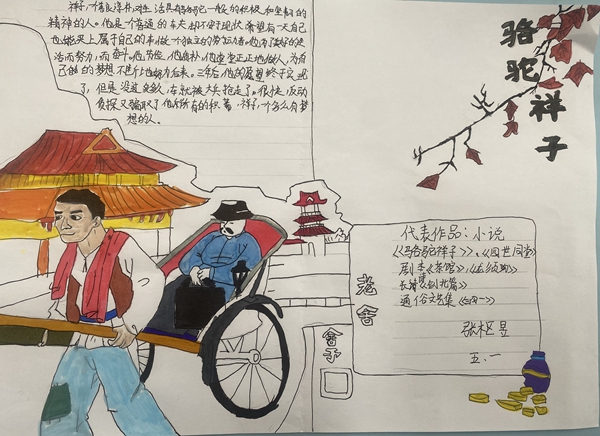 祥子,个善良淳朴,对生活具有骆驼一般的积极和坚韧的
精神的人。他是一个普通的车夫却不安于现状,希望有一天自己
也能买上属于自己的车,做一个独立的劳动者。他为了美好的生
活而努力,而奋斗。他善俭,他质朴,他堂堂正正地做人,为自
己的梦想不懈地努力后来。三年后,他的愿望终于实现
了,但是没过多久,车就被大兵抢走了。很快,反动
侦探又骗取了他所有的积蓄。祥子,一个多么有梦
想的人。
骆驼祥子
代表作品:小说
《骆驼祥子》、《四世同堂》
剧本《茶馆》、《龙须沟》
长诗《剑北篇》
通俗文艺集《三四一》
张枢昱
五.一
老舍
舍予